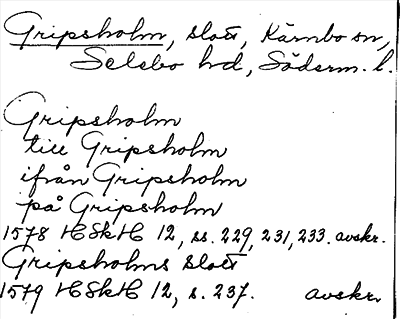 Gripsholm, slott, Kärnbo sn,
Selebo hd, Söderm. l.
Gripsholm
till Gripsholm
ifrån Gripsholm
på Gripsholm
1578 HSkH 12, ss. 229, 231, 233. avskr.
Gripsholms slott
1579 HSkH 12, s. 237. avskr.